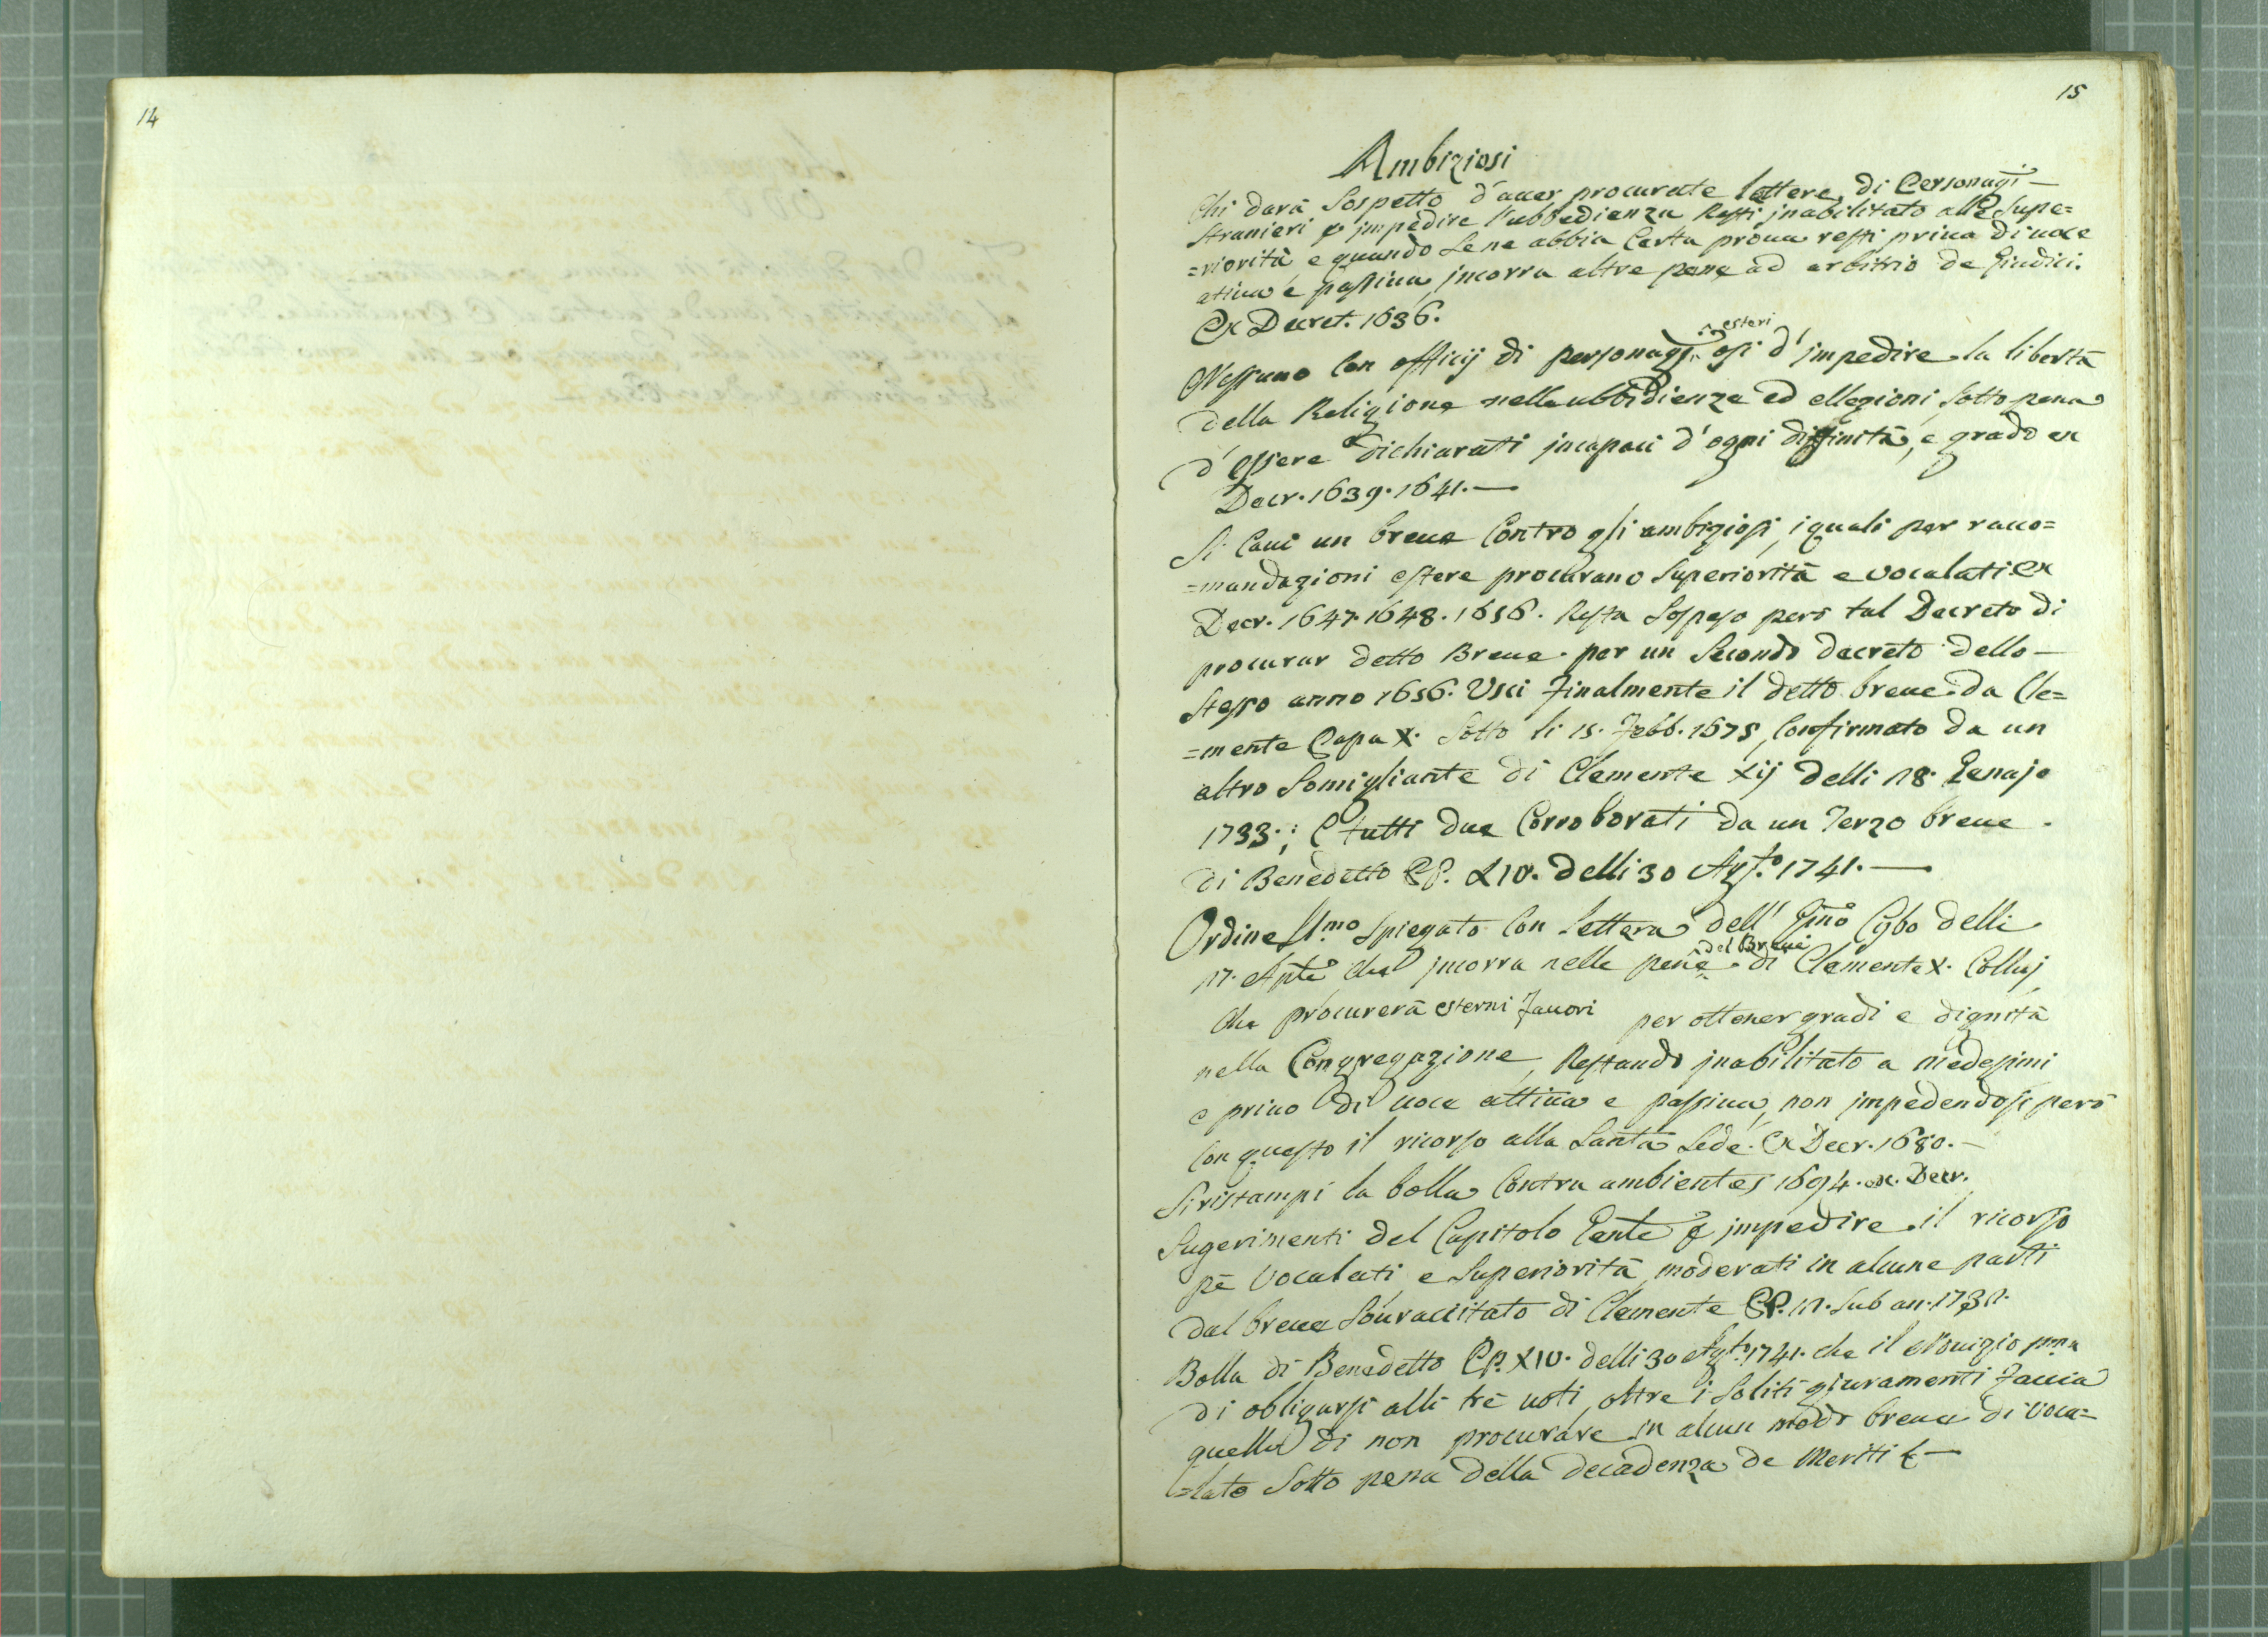 14
15
Ambiziosi
Chi darà Sospetto d'auer procurate lettere di Personagi
Stranieri p impedire l'ubbedienza Resti jnabilitato alle Supe=
=riorità e quando Se ne abbia Certa proua resti priua di uoce
atiua e passiua jncorra altre pene ad arbitrio de Giudici.
Ex Decret. 1636.
Nessuno Con officij di personagi esteri osi d'jmpedire la libertà
della Religione nelle ubbidienze ed ellezioni Sotto pena
d'essere dichiarati jncapaci d'ogni diffinità, e grado ex
Decr. 1639. 1641.—
Si Caui un breue Contro gli ambiziosi, i quali per racco=
=mandazioni estere procurano Superiorità e vocalati ex
Decr. 1647. 1648. 1656. Resta Sospeso però tal Decreto di
procurar detto Breue. per un Secondo decreto dello—
Stesso anno 1656. Usci finalmente il detto breue da Cle=
=mente Papa X. Sotto li 15. Febb. 1675, Confirmato da un
altro Somigliante di Clemente xij delli 18. Genajo
1733.; E tutti due Corroborati da un Terzo breue.
di Benedetto PP. XIV. delli 30 Agto. 1741.—
Ordine SSmo Spiegato Con Lettera dell' Emo Cybo delli
17. che jncorra nelle pene del Breue di Clemente X. Collui
che procurerà esterni fauori per ottener gradi e dignità
nella Congregazione, Restando jnabilitato a medesimi
e priuo di uoce attiua e passiua, non jmpedendosi però
Con questo il ricorso alla Santa Sede. Ex Decr. 1680.—
Si ristampi la bolla Contra ambientes 1694. ex. Decr.
Sugerimenti del Capitolo Genle p jmpedire il ricorso
pe Vocalati, e Superiorità, moderati in alcune parti
dal breue Souraccitato di Clemente PP. 12. Sub an.
Bolla di Benedetto PP. XIV. delli 30 Agto. 1741. che il Nouizio pma
di obligarsi alli tre uoti, oltre i Soliti giuramenti faccia
quello di non procurare in alcun modo breue di Voca=
=lato Sotto pena della decadenza de Meriti &—